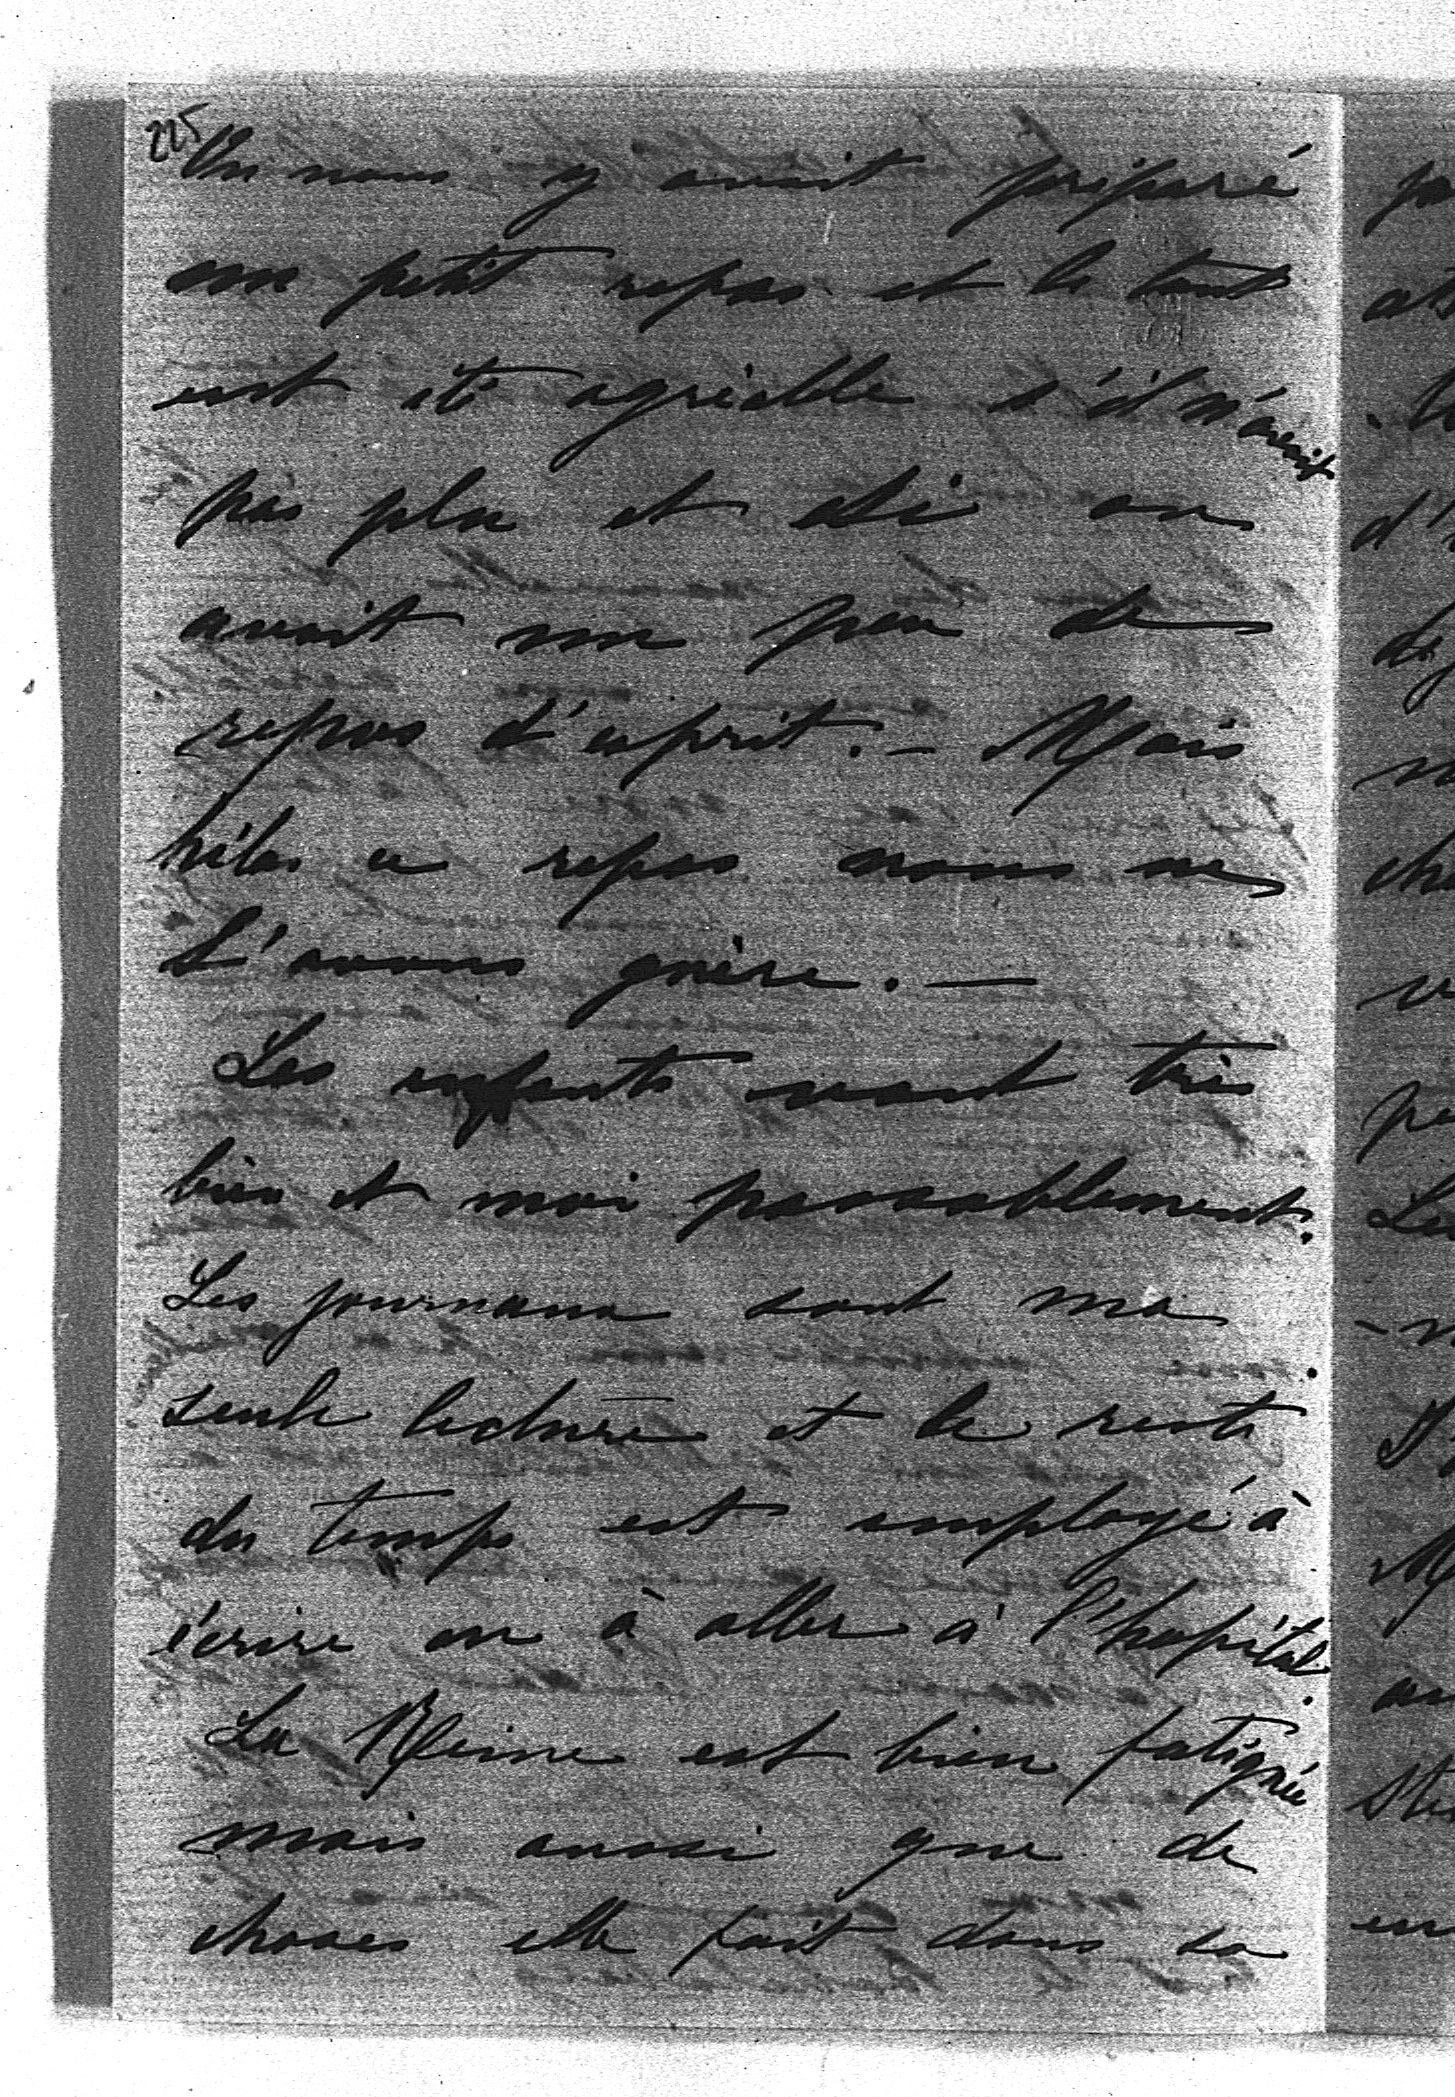 225
On nous y avait préparé
un petit repas et le tout
eut été agréable s'il n'avait
pas plu et si on
avait un peu de
repos d'esprit. — Mais
hélas ce repos nous ne
l'avons guère. —
Les enfants vont très
bien et moi passablement.
Les journaux sont ma
seule lecture et le reste
du temps est employé à
écrire ou à aller à l'hopital.
La Reine est bien fatiguée
mais aussi que de
choses elle fait dans sa